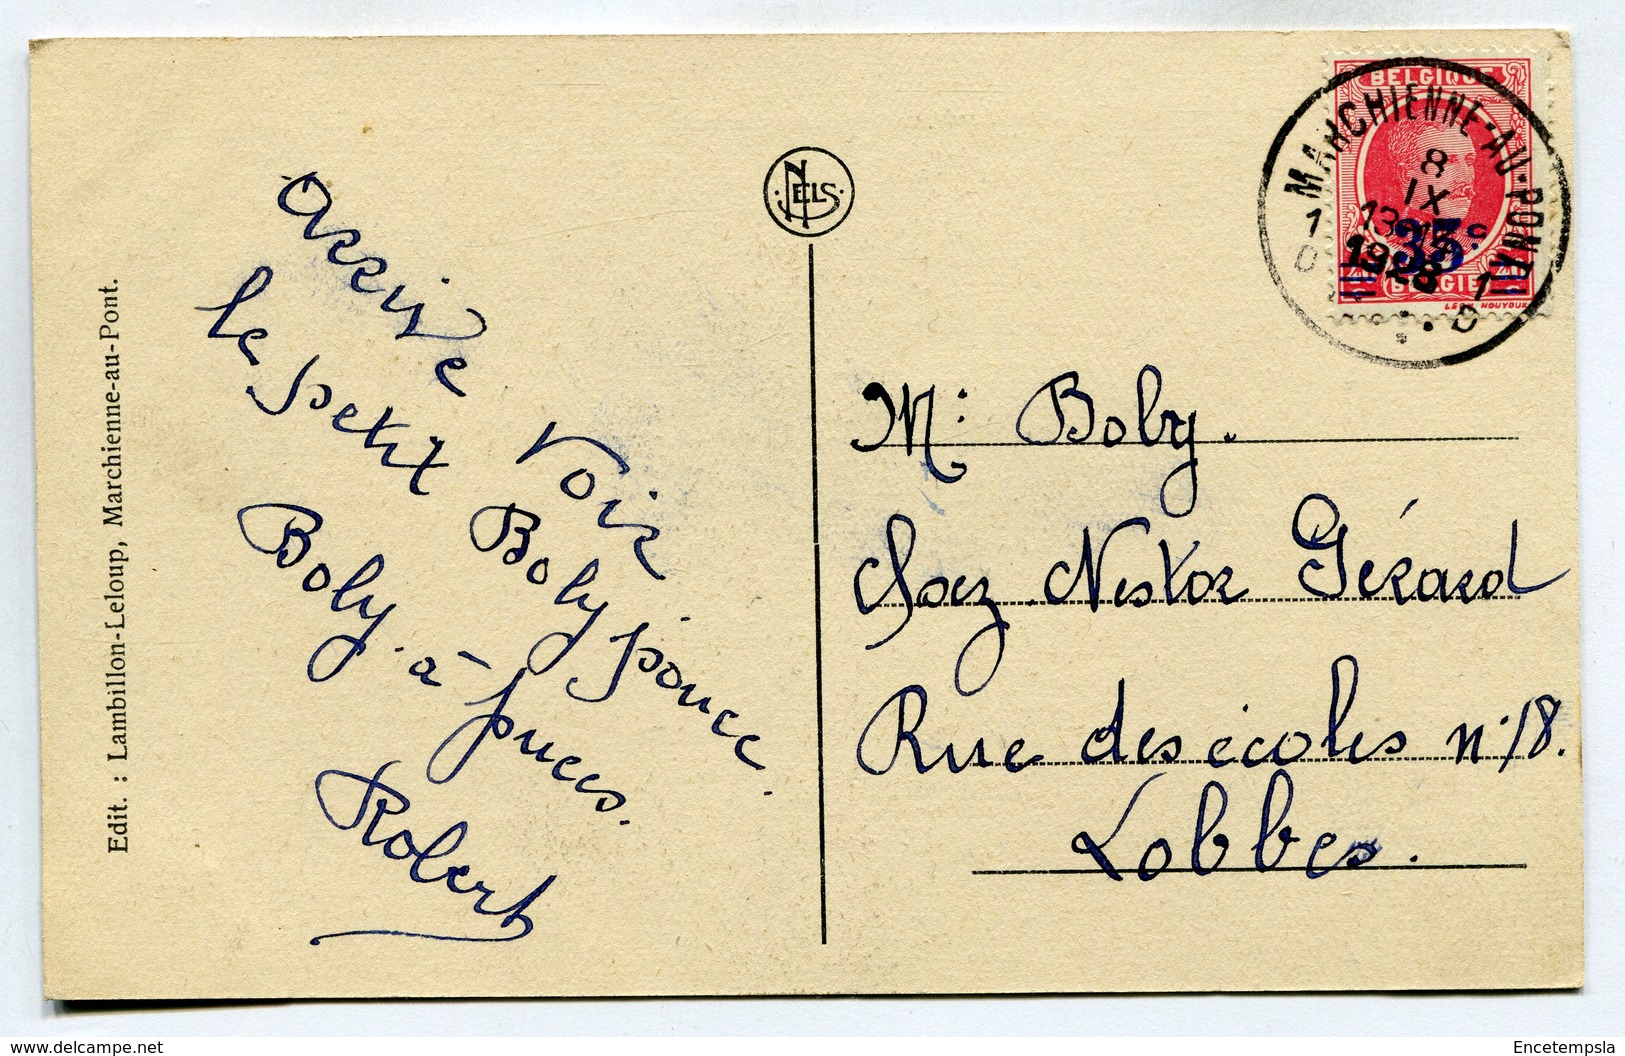 Edit. : Lambillon-Leloup, Marchienne-au-Pont.
Arrive voir
le petit Boby pouce.
Boby à puces.
Robert
NELS
BELGIQUE
35c
BELGIË
MARCHIENNE-AU-PONT
8
IX
13
1928
1 D
1 D
M: Boby.
chez Nestor Gérard
Rue des écoles n: 18.
Lobbes.
www.delcampe.net
Encetempsla